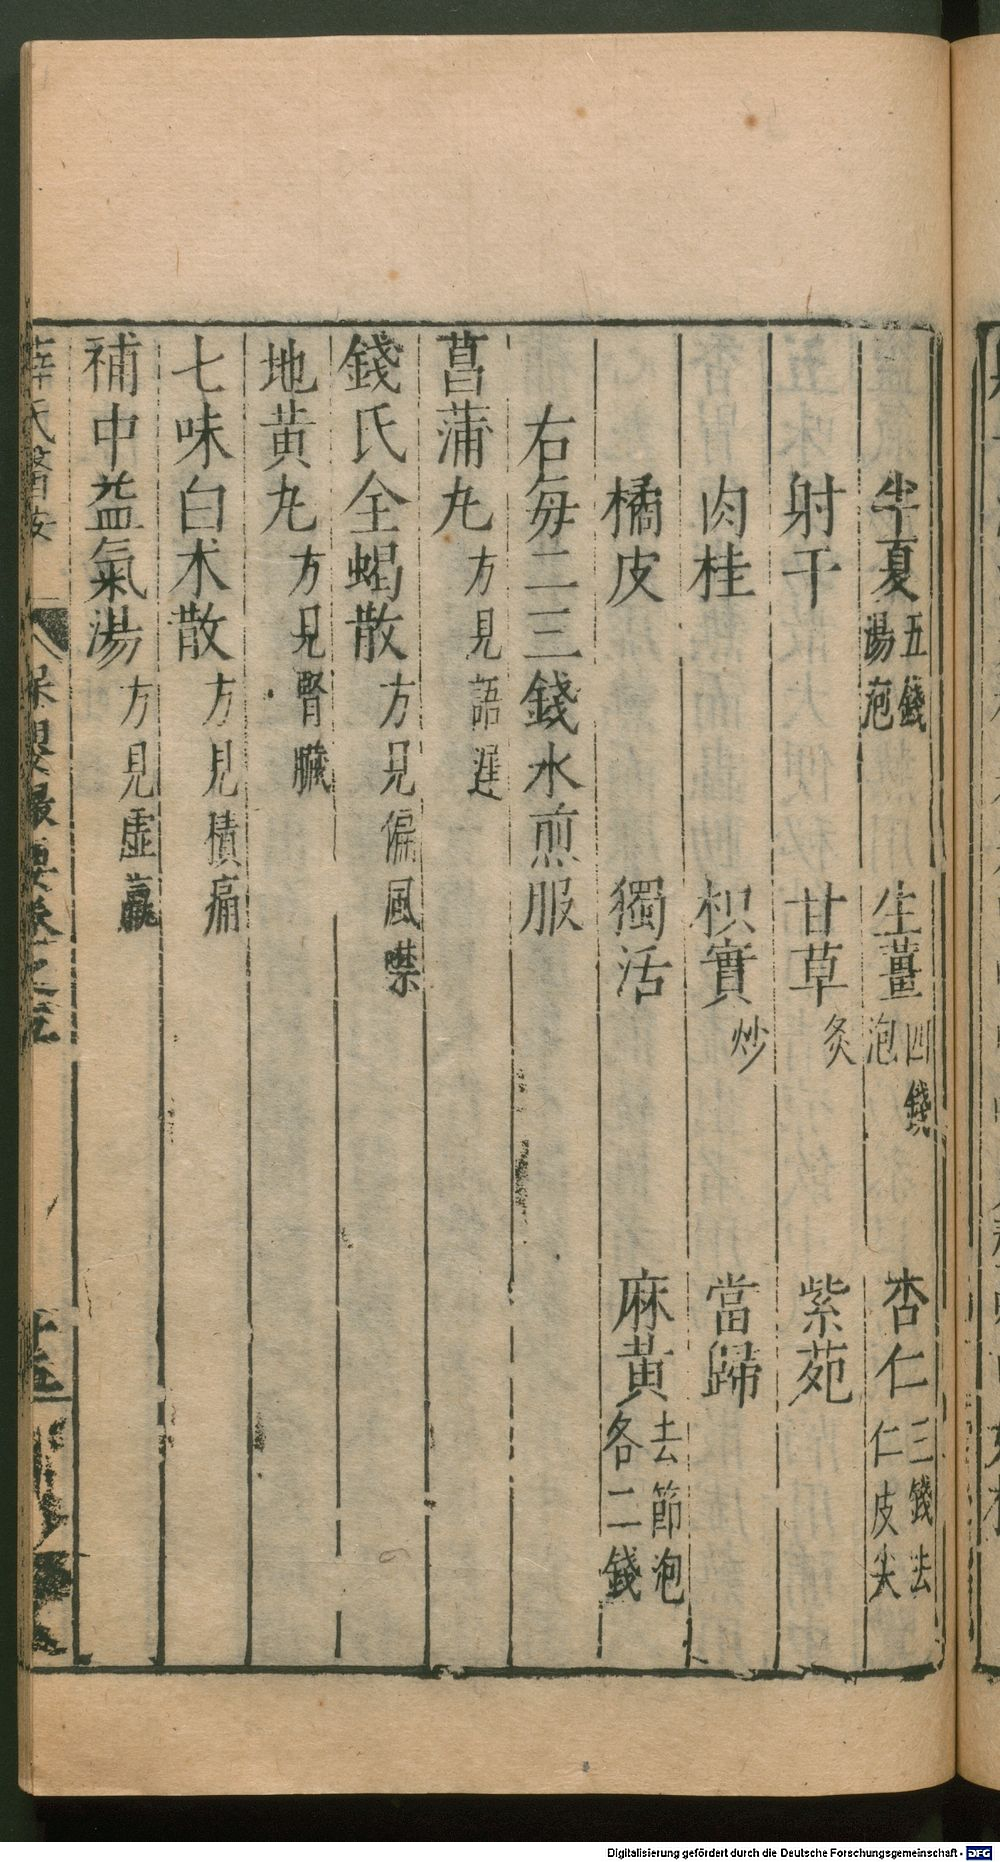 半夏五錢湯泡 生薑四錢泡 杏仁三錢去仁皮尖
射干 甘草炙 紫苑
肉桂 枳實炒 當歸
橘皮 獨活 麻黃去節泡各二錢
右每二三錢水煎服
菖蒲丸方見語遲
錢氏全蝎散方見偏風噤
地黃丸方見腎臟
七味白术散方見積痛
補中益氣湯方見虛羸
薛氏醫按 保嬰撮要卷之五 十五
Digitalisierung gefördert durch die Deutsche Forschungsgemeinschaft - DFG